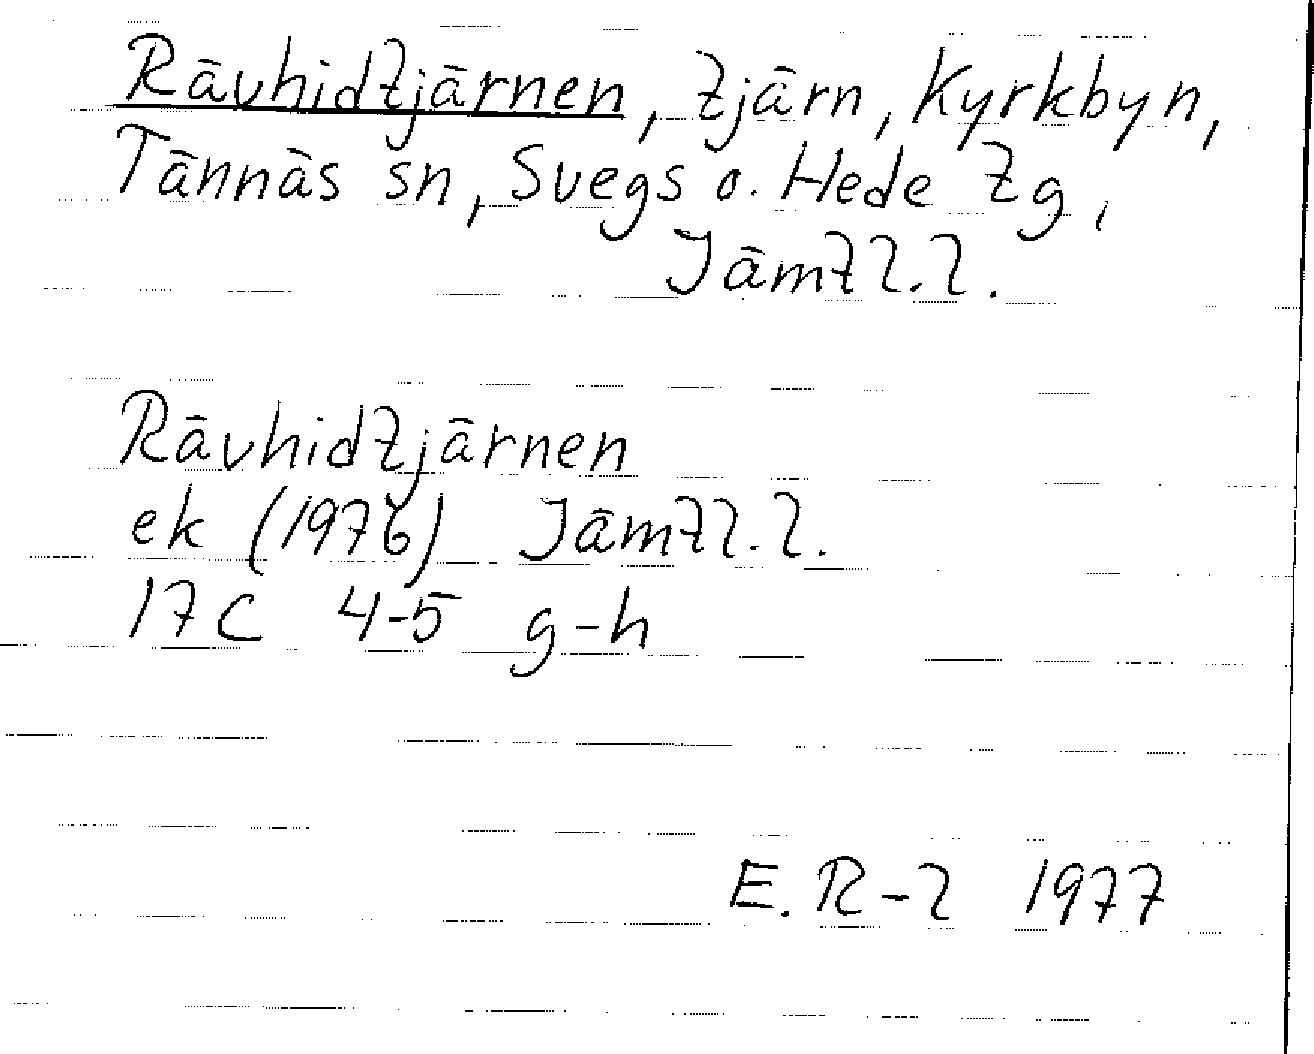 Rävhidtjärnen, tjärn, Kyrkbyn,
Tännäs sn, Svegs o. Hede tg,
Jämtl.l.
Rävhidtjärnen
ek (1976) Jämtl.l.
17C 4-5 g-h
E. R-l 1977